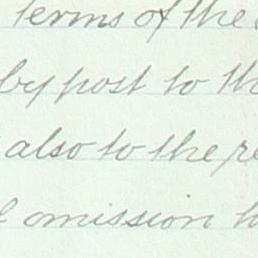 terms of the
by post to th
also to the re
omission